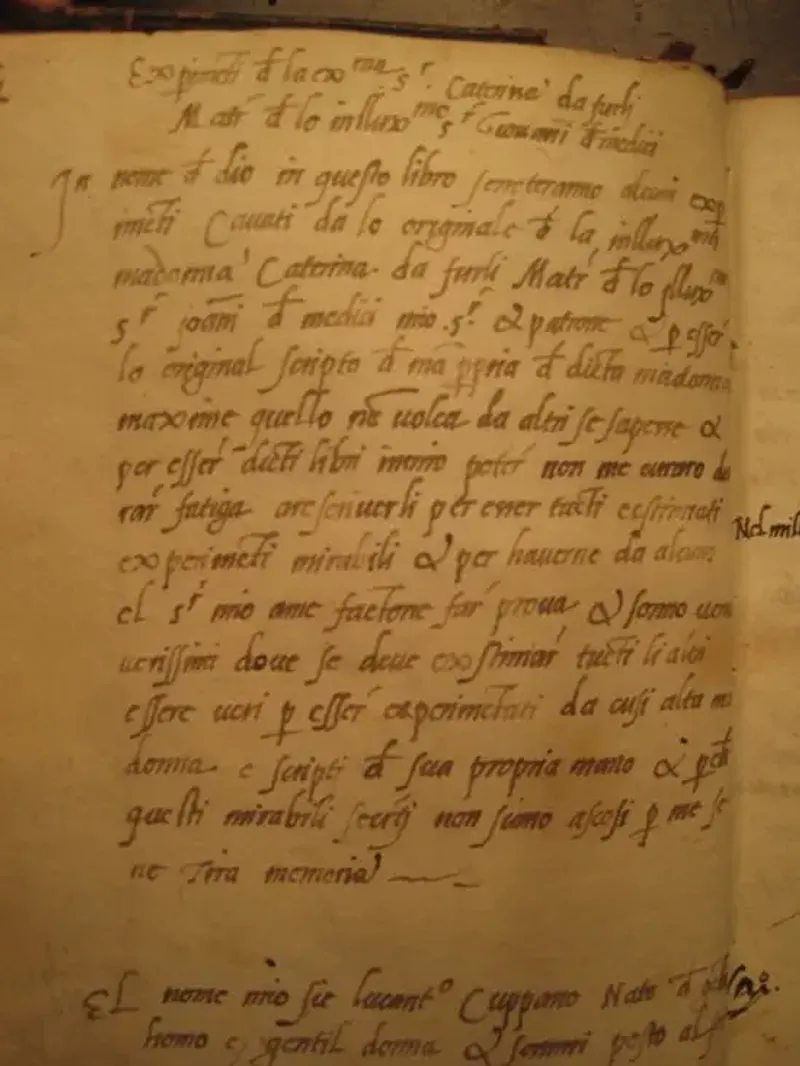 Experimēti đ la ex ma sr Caterina da furlj
Matr đ lo Inllux mo sr Giouanni đ medici
In nome đ dio in questo libro seneteranno alcuni exp
imēti Cauati da lo originale đ la inllux
madonna Caterina da furli Matr đ lo Illux
sr joāni đ medici mio sr & patrone & ꝑ esser
lo original scripto đ ma ppria đ dicta madonna
maxime quello nō uolea da altri se sapesse &
per esser dicti libri poter non me curaro
rar fatiga per tucti
experimēti mirabili & per hauerne da alcuni
el sr mio ame factone far proua & sonno
uerissimi doue se deue existimar tucti li altri
essere ueri ꝑ esser experimētati da cusi alta ma
donna e scripti đ sua propria mano &
questi mirabili secrti non siano ascosi ꝑ me se
ne Tira memoria
El nome mio sie lucant° Cuppano Nato đ
homo e gentil donna & posto al
Nel mill